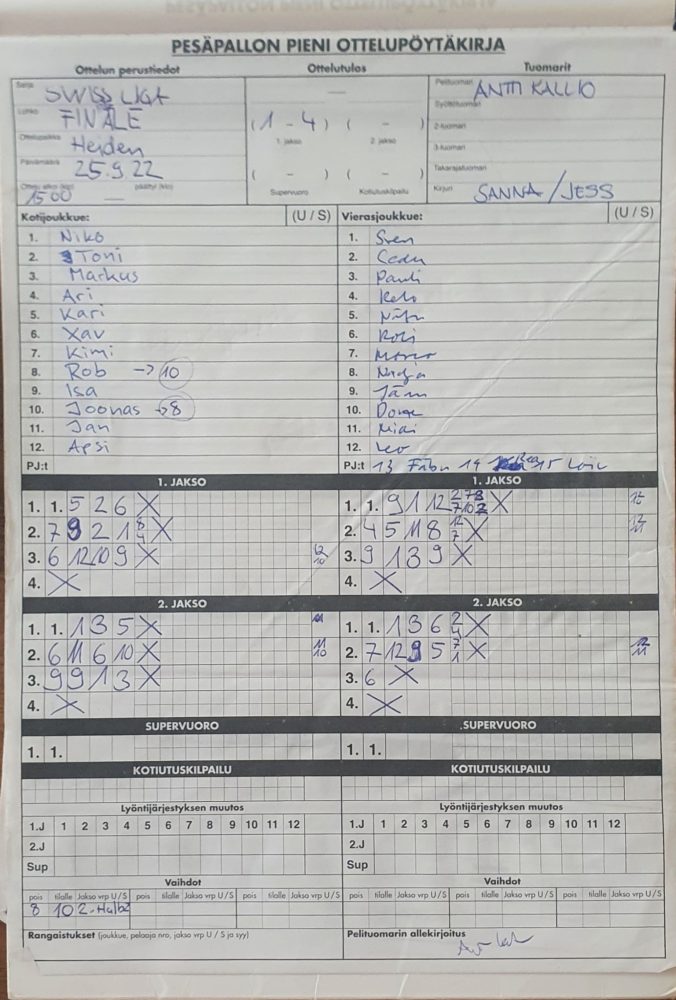 PESÄPALLON PIENI OTTELUPÖYTÄKIRJA
Ottelun perustiedot Ottelutulos Tuomarit
Sarja SWISS LIGA Pelituomari ANTTI KALLIO
Lohko FINALE Syöttötuomari
(1 - 4) ( - ) 2-tuomari
Ottelupaikka Heiden 1. jakso 2. jakso 3-tuomari
Päivämäärä 25.9.22 ( - ) ( - ) Takarajatuomari
Ottelu alkoi (klo) 1500 päättyi (klo) — Supervuoro Kotiutuskilpailu Kirjuri SANNA/JESS
Kotijoukkue: (U / S) Vierasjoukkue: (U / S)
1. Niko 1. Sven
2. Toni 2.
3. Markus 3.
4. Ari 4.
5. Kari 5.
6. Xav 6.
7. Kimi 7. Marco
8. Rob -> 10 8. Nadja
9. Isa 9.
10. Joonas -> 8 10.
11. Jan 11.
12. Apsi 12. Leo
PJ:t PJ:t 13 14 15
1. JAKSO 1. JAKSO
1. 1. 5 2 6 X 1. 1. 9 11 12 X
2. 7 9 2 1 8 4 X 2. 4 5 11 8 12 7 X
3. 6 12 10 9 X 12 10 3. 9 1 3 9 X
4. X 4. X
2. JAKSO 2. JAKSO
1. 1. 1 3 5 X 1. 1. 1 3 6 2 4 X
2. 6 11 6 10 X 11 10 2. 7 12 9 5 7 1 X
3. 9 9 1 3 X 3. 6 X
4. X 4. X
SUPERVUORO SUPERVUORO
1. 1. 1. 1.
KOTIUTUSKILPAILU KOTIUTUSKILPAILU
Lyöntijärjestyksen muutos Lyöntijärjestyksen muutos
1.J 1 2 3 4 5 6 7 8 9 10 11 12 1.J 1 2 3 4 5 6 7 8 9 10 11 12
2.J 2.J
Sup Sup
Vaihdot Vaihdot
pois tilalle Jakso vrp U/S pois tilalle Jakso vrp U/S pois tilalle Jakso vrp U/S pois tilalle Jakso vrp U/S
8 10 2. Halbz
Rangaistukset (joukkue, pelaaja nro, jakso vrp U / S ja syy) Pelituomarin allekirjoitus